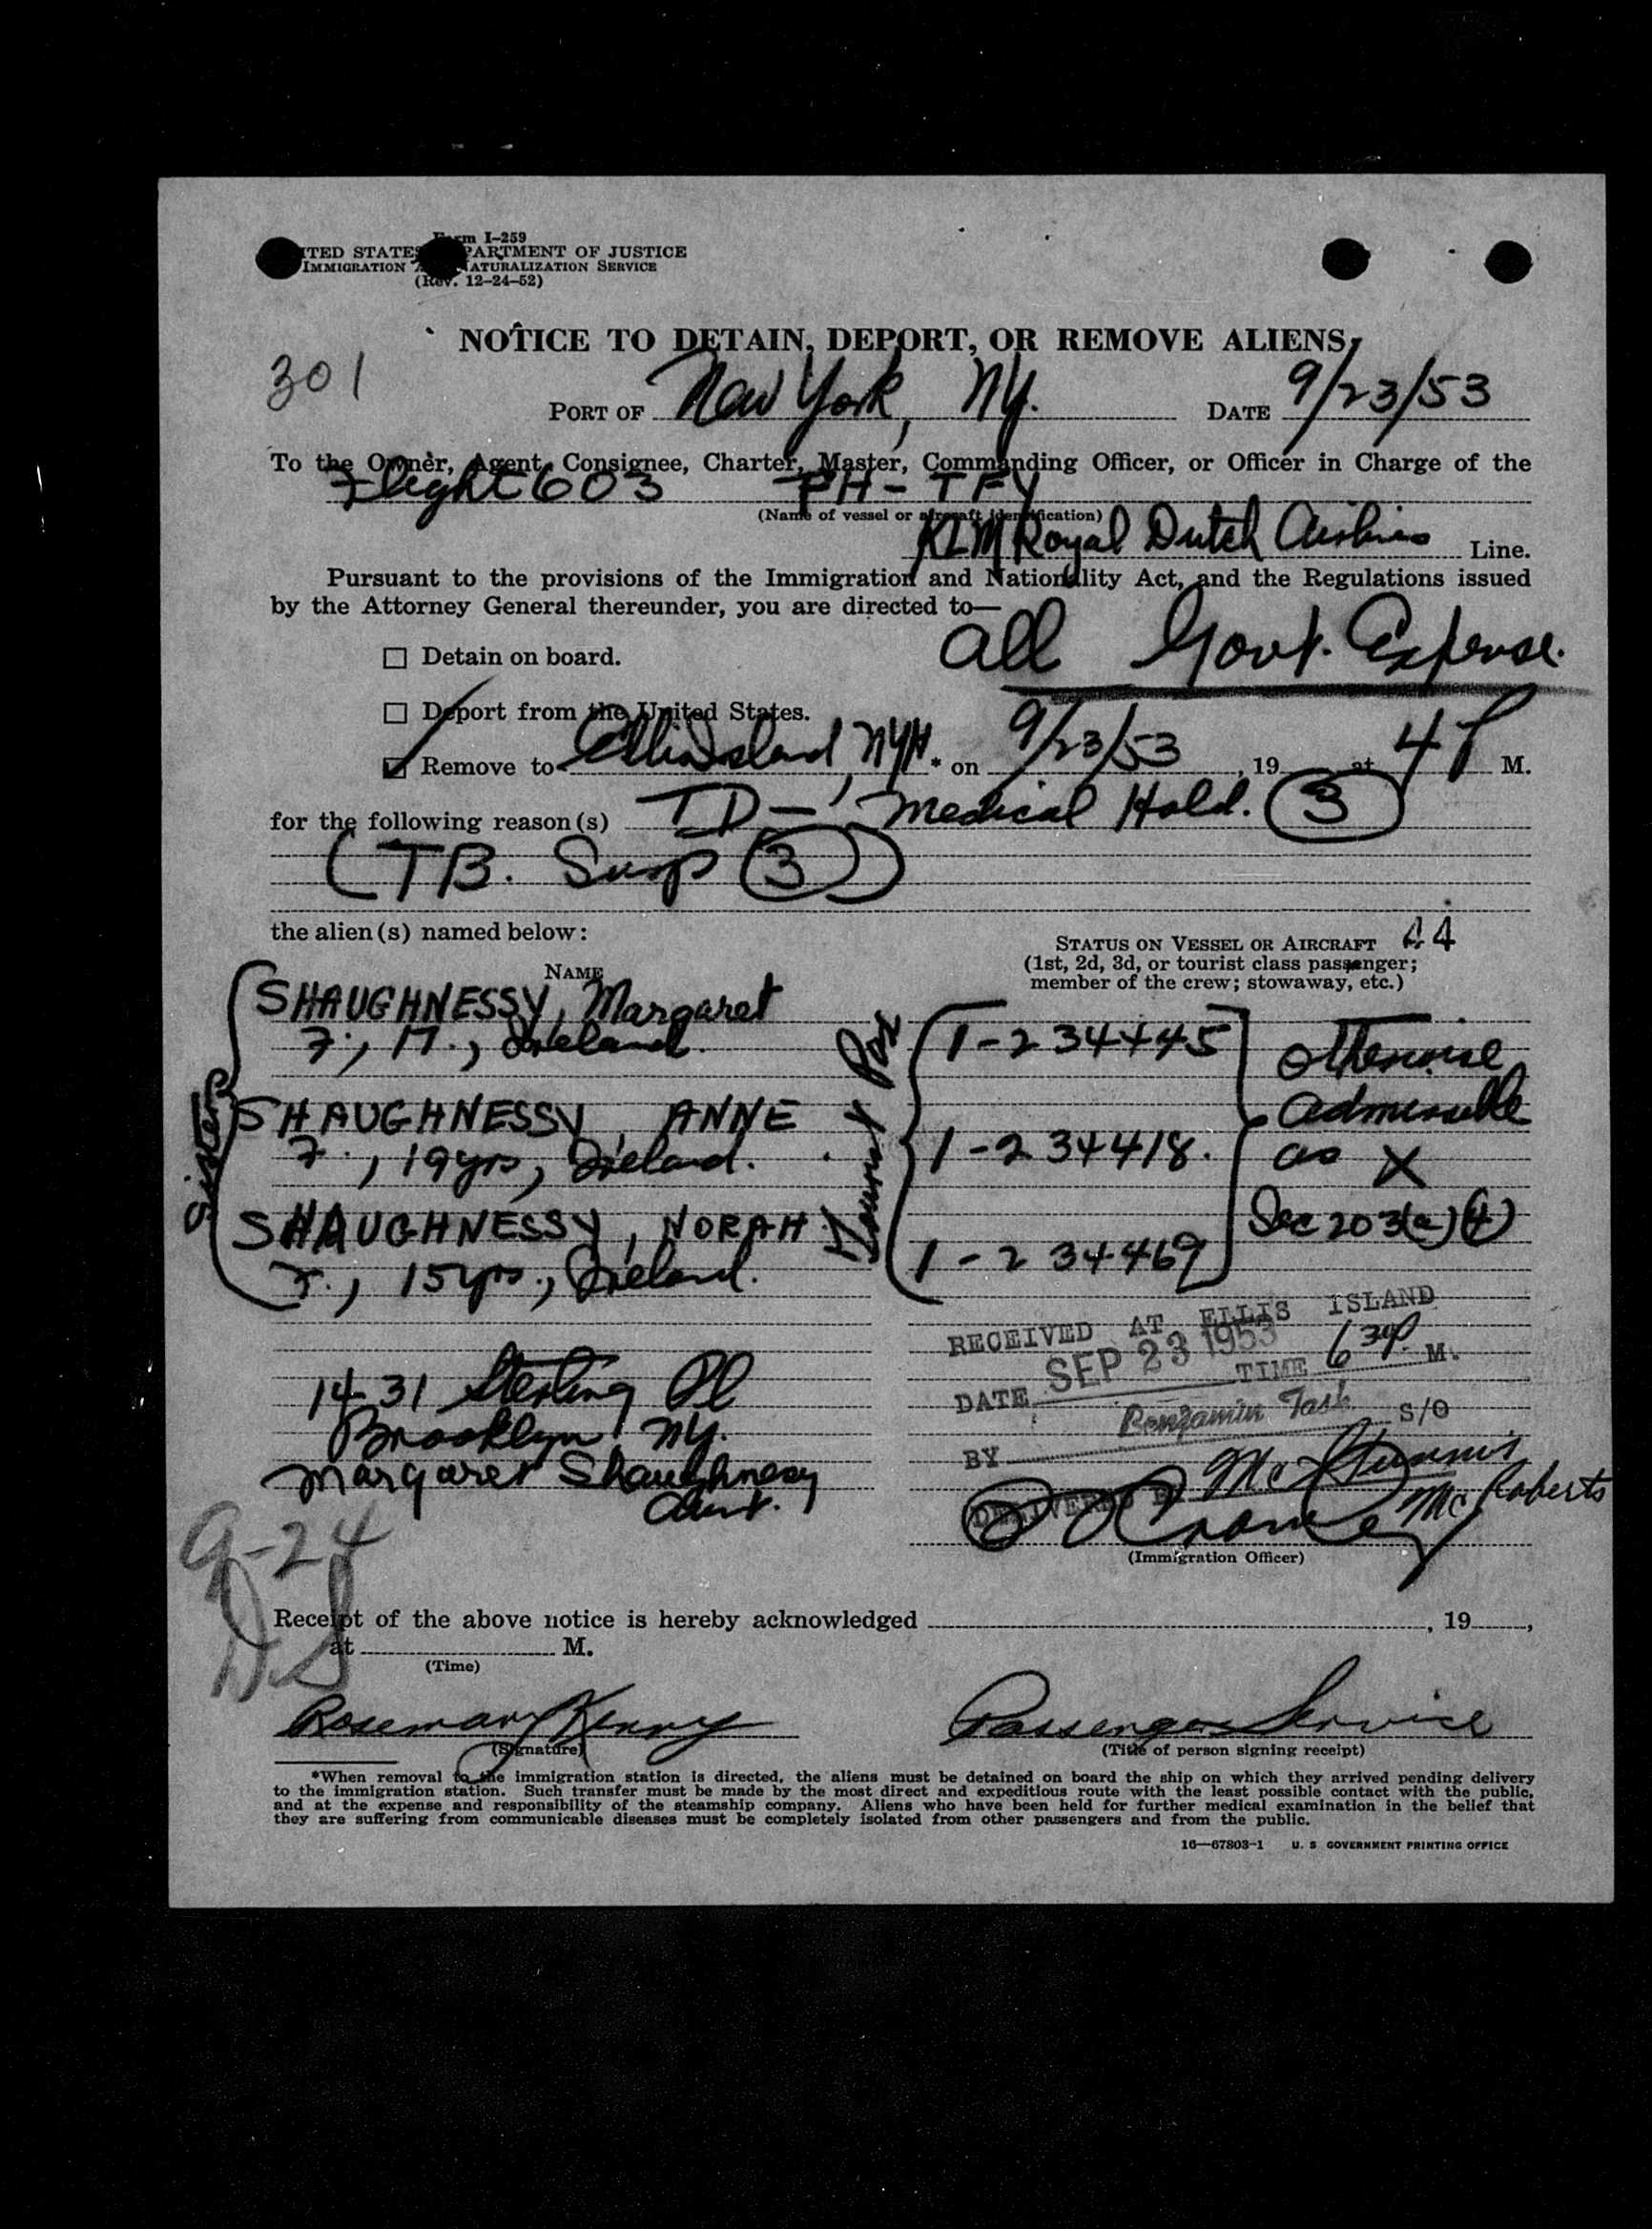 Form I-259
UNITED STATES DEPARTMENT OF JUSTICE
IMMIGRATION AND NATURALIZATION SERVICE
(Rev. 12-24-52)
NOTICE TO DETAIN, DEPORT, OR REMOVE ALIENS
301
PORT OF New York, NY. DATE 9/23/53
To the Owner, Agent, Consignee, Charter, Master, Commanding Officer, or Officer in Charge of the
Flight 603 PH-TFY
(Name of vessel or aircraft identification)
KLM Royal Dutch Airlines Line.
Pursuant to the provisions of the Immigration and Nationality Act, and the Regulations issued
by the Attorney General thereunder, you are directed to—
All Govt. Expense.
☐ Detain on board.
☐ Deport from the United States.
☑ Remove to Ellis Island, NYH.* on 9/23/53, 19 at 4 P M.
for the following reason(s) TD- Medical Hold. (3)
(TB. Susp (3))
the alien(s) named below:
STATUS ON VESSEL OR AIRCRAFT 44
(1st, 2d, 3d, or tourist class passenger;
member of the crew; stowaway, etc.)
NAME
Sisters
SHAUGHNESSY, Margaret
F., 17., Ireland.
SHAUGHNESSY, ANNE
F., 19yrs, Ireland.
SHAUGHNESSY, NORAH
F., 15yrs., Ireland.
Tourist Pax
1-234445
1-234418.
1-234469
Otherwise
admissible
as X
Sec 203(a)(4)
1431 Sterling Pl
Brooklyn NY.
Margaret Shaughnessy
Aunt.
RECEIVED AT ELLIS ISLAND
DATE SEP 23 1953 TIME 6 30 P. M.
BY Benjamin Task S/O
DELIVERED BY
Mc Roberts
(Immigration Officer)
9-24
DS
Receipt of the above notice is hereby acknowledged , 19 ,
at M.
(Time)
Rosemary Kenny
(Signature)
Passenger Service
(Title of person signing receipt)
*When removal to the immigration station is directed, the aliens must be detained on board the ship on which they arrived pending delivery
to the immigration station. Such transfer must be made by the most direct and expeditious route with the least possible contact with the public,
and at the expense and responsibility of the steamship company. Aliens who have been held for further medical examination in the belief that
they are suffering from communicable diseases must be completely isolated from other passengers and from the public.
16—67803-1 U. S. GOVERNMENT PRINTING OFFICE